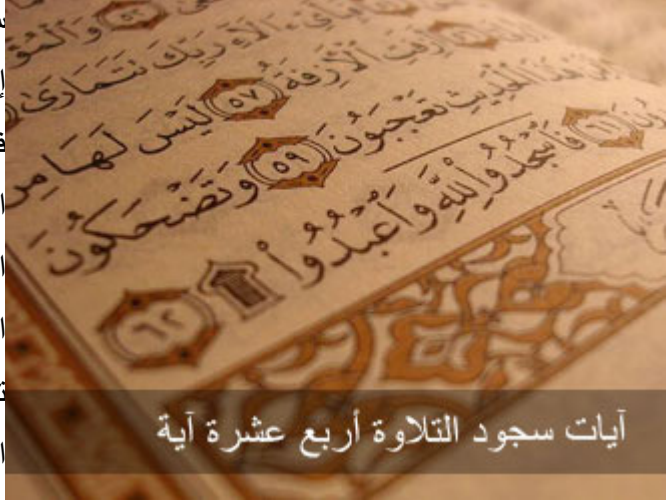 وَالْمُؤْ
رَبِّكَ تَتَمَارَىٰ
أَزِفَتِ ٱلْأَزِفَةُ ٥٧ لَيْسَ لَهَا مِن
هَٰذَا ٱلْحَدِيثِ تَعْجَبُونَ ٥٩ وَتَضْحَكُونَ
ونَ ٦١ فَٱسْجُدُوا۟ لِلَّهِ وَٱعْبُدُوا۟ ۩ ٦٢
آيات سجود التلاوة أربع عشرة آية